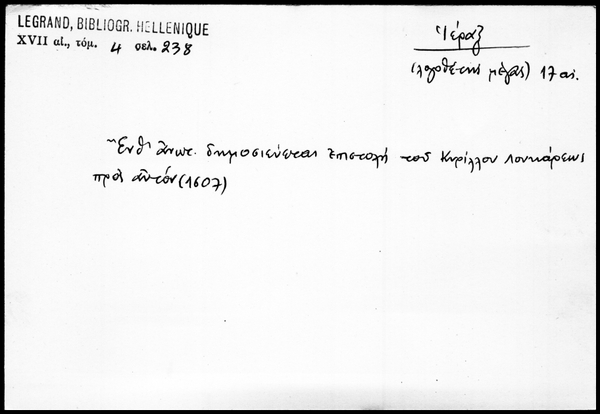 LEGRAND, BIBLIOGR. HELLENIQUE
XVII αἰ., τόμ. 4 σελ. 238
Ἱέραξ
(λογοθέτης μέγας) 17 αι.
Ἔνθ' ἄνωτ. δημοσιεύεται ἐπιστολή τοῦ Κυρίλλου Λουκάρεως
πρὸς αὐτόν (1607)